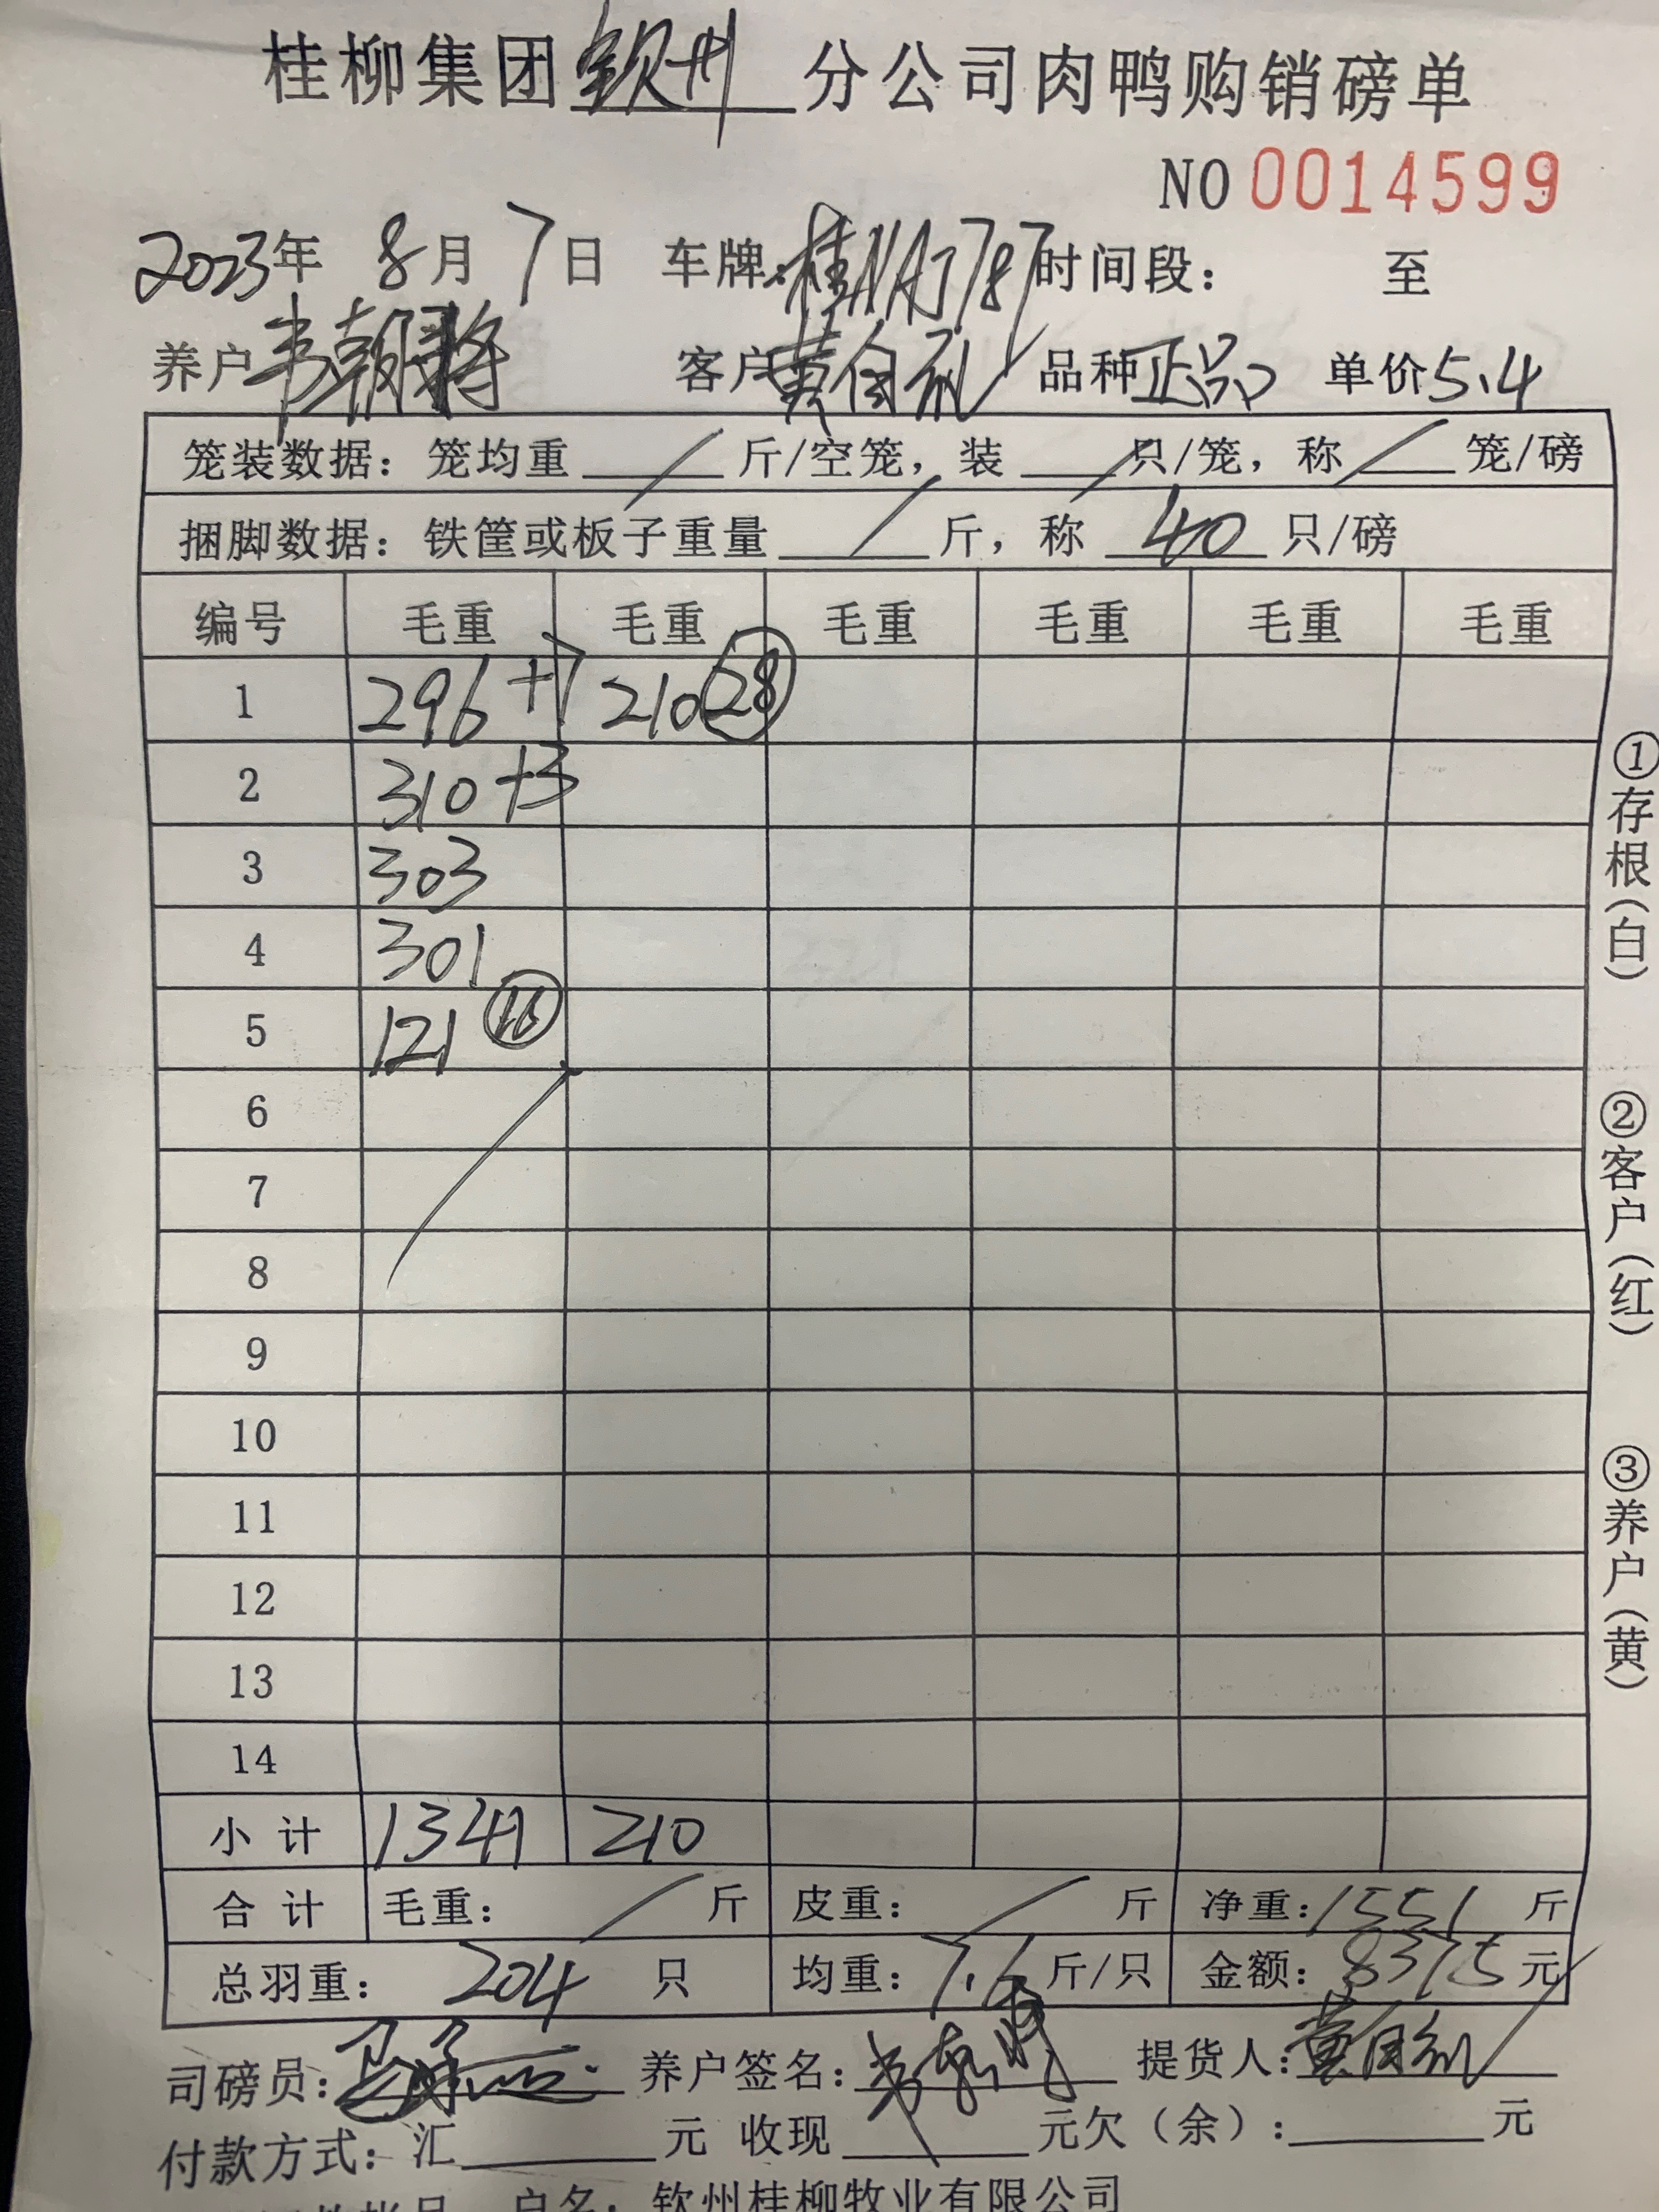 桂柳集团钦州分公司肉鸭购销磅单
NO 0014599
2023年 8月 7日 车牌:桂NAJ787 时间段: 至
养户韦朝将 客户黄自 品种正品 单价5.4
笼装数据: 笼均重 / 斤/空笼, 装 / 只/笼, 称 / 笼/磅
捆脚数据: 铁筐或板子重量 / 斤, 称 40 只/磅
编号 毛重 毛重 毛重 毛重 毛重 毛重
1 296+7 210 28
2 310+3
3 303
4 301
5 121 16
6
7
8
9
10
11
12
13
14
小计 1341 210
合计 毛重: / 斤 皮重: / 斤 净重: 1551 斤
总羽重: 204 只 均重: 7.6 斤/只 金额: 8375 元
司磅员: 养户签名: 韦朝将 提货人: 黄自
付款方式: 汇 元 收现 元欠(余): 元
户名: 钦州桂柳牧业有限公司
①存根(白)
②客户(红)
③养户(黄)